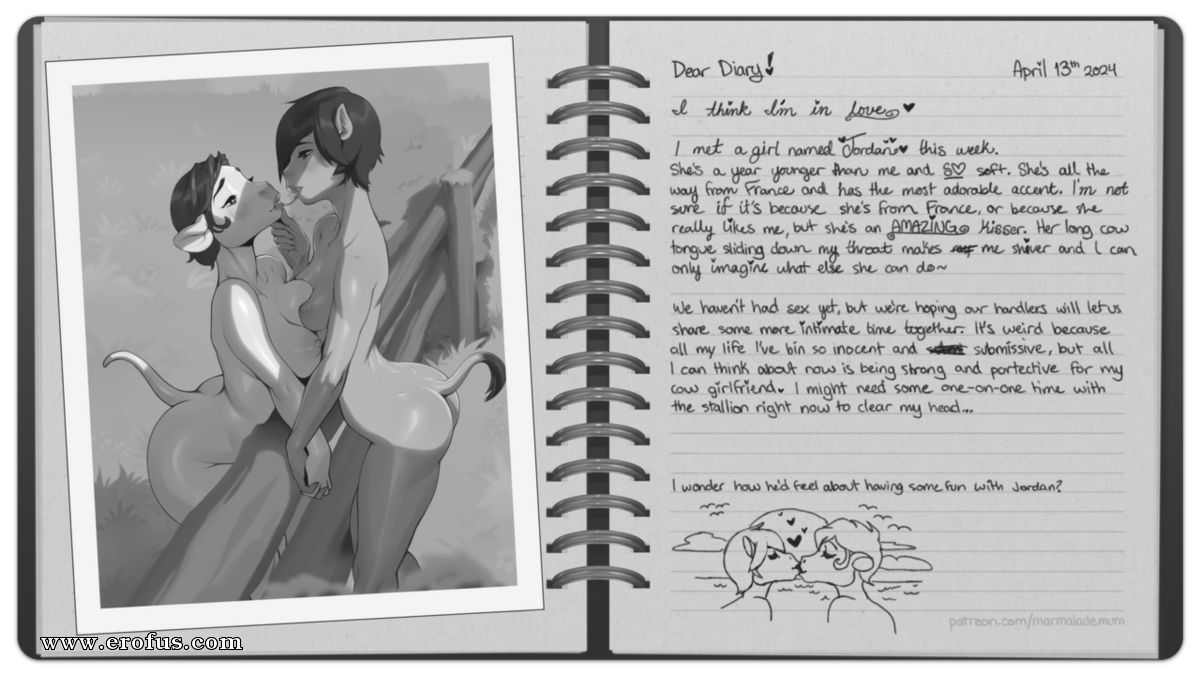 Dear Diary!
April 13th 2024
I think I'm in love
I met a girl named Jordan this week.
She's a year younger than me and SO soft. She's all the
way from France and has the most adorable accent. I'm not
sure if it's because she's from France, or because she
really likes me, but she's an AMAZING kisser. Her long cow
tongue sliding down my throat makes me shiver and I can
only imagine what else she can do~
We haven't had sex yet, but we're hoping our handlers will let us
share some more intimate time together. It's weird because
all my life I've bin so inocent and submissive, but all
I can think about now is being strong and portective for my
cow girlfriend. I might need some one-on-one time with
the stallion right now to clear my head...
I wonder how he'd feel about having some fun with Jordan?
patreon.com/marmalademum
www.erofus.com